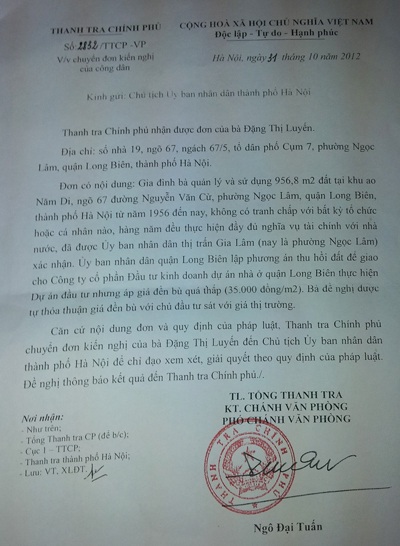 THANH TRA CHÍNH PHỦ
CỘNG HOÀ XÃ HỘI CHỦ NGHĨA VIỆT NAM
Độc lập - Tự do - Hạnh phúc
Số 2832/TTCP -VP
V/v chuyển đơn kiến nghị
của công dân
Hà Nội, ngày 31 tháng 10 năm 2012
Kính gửi: Chủ tịch Ủy ban nhân dân thành phố Hà Nội
Thanh tra Chính phủ nhận được đơn của bà Đặng Thị Luyến.
Địa chỉ: số nhà 19, ngõ 67, ngách 67/5, tổ dân phố Cụm 7, phường Ngọc
Lâm, quận Long Biên, thành phố Hà Nội.
Đơn có nội dung: Gia đình bà quản lý và sử dụng 956,8 m2 đất tại khu ao
Năm Di, ngõ 67 đường Nguyễn Văn Cừ, phường Ngọc Lâm, quận Long Biên,
thành phố Hà Nội từ năm 1956 đến nay, không có tranh chấp với bất kỳ tổ chức
hoặc cá nhân nào, hàng năm đều thực hiện đầy đủ nghĩa vụ tài chính với nhà
nước, đã được Ủy ban nhân dân thị trấn Gia Lâm (nay là phường Ngọc Lâm)
xác nhận. Ủy ban nhân dân quận Long Biên lập phương án thu hồi đất để giao
cho Công ty cổ phần Đầu tư kinh doanh dự án nhà ở quận Long Biên thực hiện
Dự án đầu tư nhưng áp giá đền bù quá thấp (35.000 đồng/m2). Bà đề nghị được
tự thỏa thuận giá đền bù với chủ đầu tư sát với giá thị trường.
Căn cứ nội dung đơn và quy định của pháp luật, Thanh tra Chính phủ
chuyển đơn kiến nghị của bà Đặng Thị Luyến đến Chủ tịch Ủy ban nhân dân
thành phố Hà Nội để chỉ đạo xem xét, giải quyết theo quy định của pháp luật.
Đề nghị thông báo kết quả đến Thanh tra Chính phủ./.
Nơi nhận:
- Như trên;
- Tổng Thanh tra CP (để b/c);
- Cục 1 – TTCP;
- Thanh tra thành phố Hà Nội;
- Lưu: VT, XLĐT.
TL. TỔNG THANH TRA
KT. CHÁNH VĂN PHÒNG
PHÓ CHÁNH VĂN PHÒNG
THANH TRA CHÍNH PHỦ
Ngô Đại Tuấn